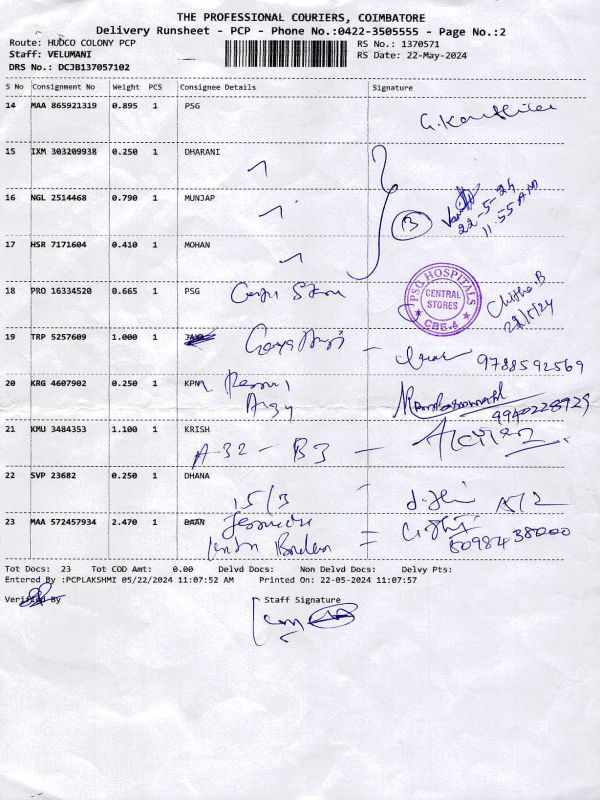 THE PROFESSIONAL COURIERS, COIMBATORE
Delivery Runsheet - PCP - Phone No.:0422-3505555 - Page No.:2
Route: HUDCO COLONY PCP
Staff: VELUMANI
DRS No.: DCJB137057102
RS No.: 1370571
RS Date: 22-May-2024
S No Consignment No Weight PCS Consignee Details Signature
14 MAA 865921319 0.895 1 PSG
15 IXM 303209938 0.250 1 DHARANI
16 NGL 2514468 0.790 1 MUNJAP
3
22-5-24
11.55 AM
17 HSR 7171604 0.410 1 MOHAN
18 PRO 16334520 0.665 1 PSG
PSG HOSPITALS
CENTRAL
STORES
CBE-4
19 TRP 5257609 1.000 1
9788592569
20 KRG 4607902 0.250 1 KPN
9940228929
21 KMU 3484353 1.100 1 KRISH
A-32 - B3 -
22 SVP 23682 0.250 1 DHANA
15/3 -
23 MAA 572457934 2.470 1 BAAN
Tot Docs: 23 Tot COD Amt: 0.00 Delvd Docs: Non Delvd Docs: Delvy Pts:
Entered By :PCPLAKSHMI 05/22/2024 11:07:52 AM Printed On: 22-05-2024 11:07:57
Verified By Staff Signature